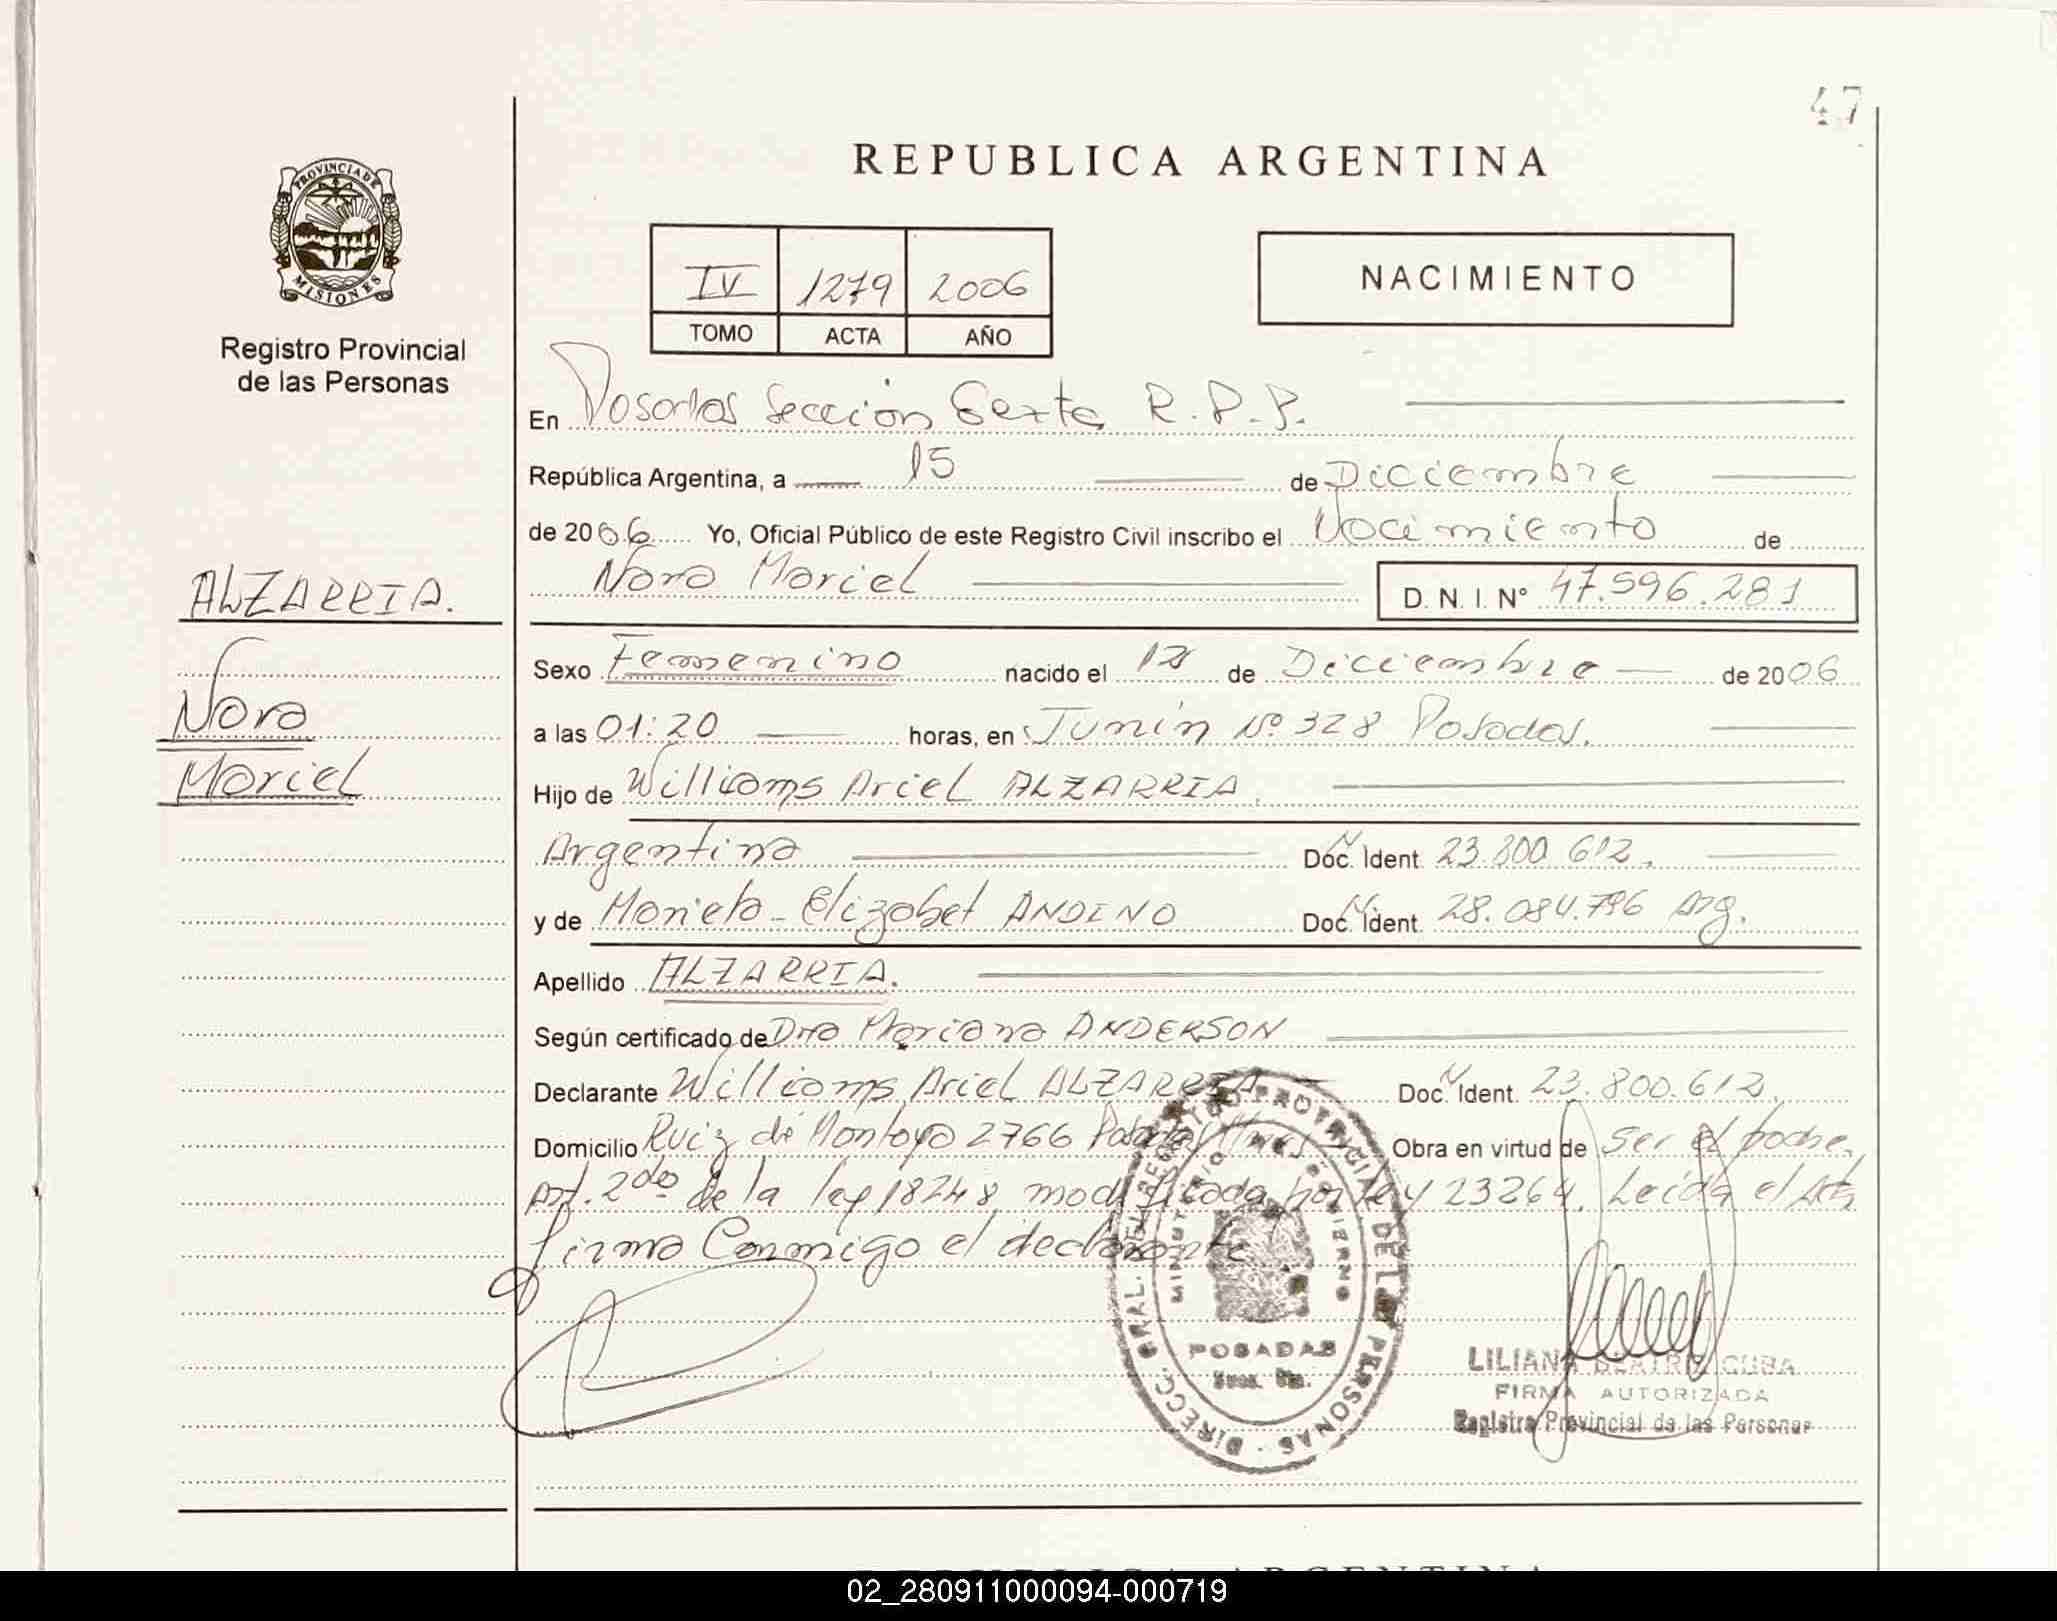 47
REPUBLICA ARGENTINA
PROVINCIA DE
MISIONES
Registro Provincial
de las Personas
IV 1279 2006
TOMO ACTA AÑO
NACIMIENTO
En Posadas Sección Sexta R.P.P.
República Argentina, a 15 de Diciembre
de 2006 Yo, Oficial Público de este Registro Civil inscribo el Nacimiento de
Nara Mariel D. N. I. Nº 47.596.281
ALZARRIA.
Nara
Mariel
Sexo Femenino nacido el 12 de Diciembre de 2006
a las 01:20 horas, en Junín Nº 328 Posadas.
Hijo de Williams Ariel ALZARRIA.
Argentina Doc. Ident. 23.800.612.
y de Marieta Elizabet ANDINO Doc. Ident. 28.084.796 Arg.
Apellido ALZARRIA.
Según certificado de Dra Mariana ANDERSON
Declarante Williams Ariel ALZARRIA Doc. Ident. 23.800.612.
Domicilio Ruiz de Montoya 2766 Posadas Obra en virtud de ser el padre.
Art. 2do de la ley 18248 modificada por ley 23264. Leída el Acta
firma Conmigo el declarante
DIRECC. GRAL. DEL REGISTRO PROVINCIAL DE LAS PERSONAS
MINISTERIO DE GOBIERNO
POSADAS
LILIANA BEATRIZ CUBA
FIRMA AUTORIZADA
Registro Provincial de las Personas
REPUBLICA ARGENTINA
02_280911000094-000719